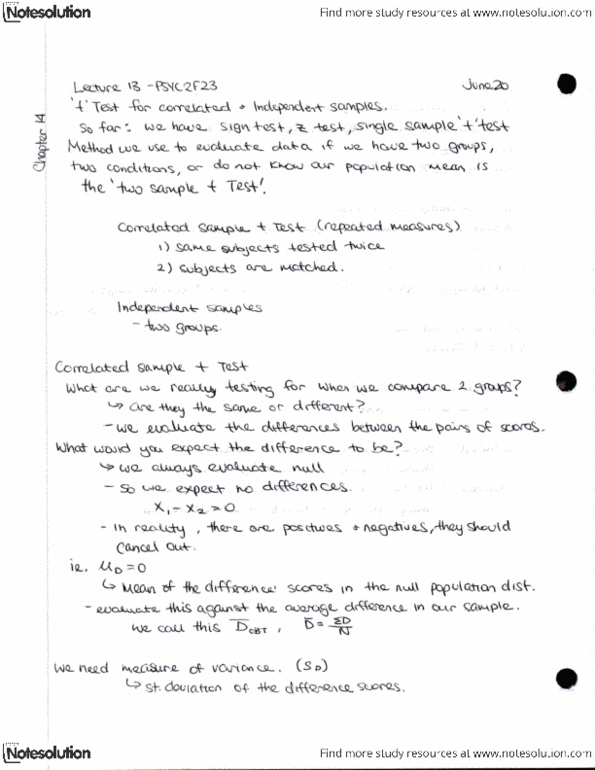 Notesolution
Find more study resources at www.notesolution.com
Lecture 13 - PSYC2F23
June 20
Chapter 14
't' Test for correlated + Independent samples.
So far: we have sign test, z test, single sample 't' test
Method we use to evaluate data if we have two groups,
two conditions, or do not know our population mean is
the 'two sample t Test'.
Correlated sample t Test (repeated measures)
1) same subjects tested twice
2) subjects are matched.
Independent samples
- two groups.
Correlated sample t Test
What are we really testing for when we compare 2 groups?
↳ are they the same or different?
- we evaluate the differences between the pairs of scores.
What would you expect the difference to be?
↳ we always evaluate null
- So we expect no differences.
X₁ - X₂ = 0
- in reality, there are positives + negatives, they should
cancel out.
ie. μD = 0
↳ Mean of the difference scores in the null population dist.
- evaluate this against the average difference in our sample.
we call this D̄OBT, D̄ = ΣD/N
We need measure of variance. (SD)
↳ st. deviation of the difference scores.
Notesolution
Find more study resources at www.notesolution.com